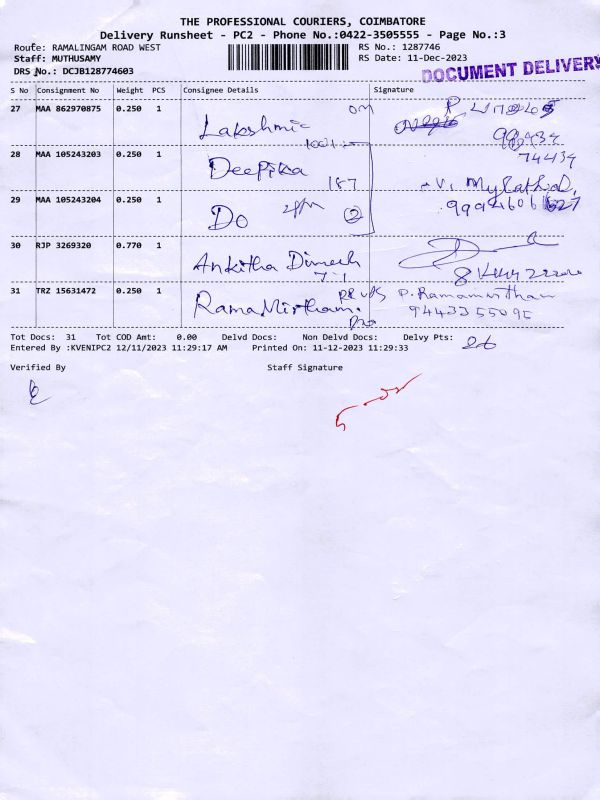 THE PROFESSIONAL COURIERS, COIMBATORE
Delivery Runsheet - PC2 - Phone No.:0422-3505555 - Page No.:3
Route: RAMALINGAM ROAD WEST
RS No.: 1287746
Staff: MUTHUSAMY
RS Date: 11-Dec-2023
DRS No.: DCJB128774603
DOCUMENT DELIVERY
S No Consignment No Weight PCS Consignee Details Signature
27 MAA 862970875 0.250 1 Lakshmi
28 MAA 105243203 0.250 1 Deepika
74434
187
29 MAA 105243204 0.250 1 Do 2
30 RJP 3269320 0.770 1 Ankitha Dinesh
31 TRZ 15631472 0.250 1 Rama Mirtham. P. Ramamirtham
9443355095
Tot Docs: 31 Tot COD Amt: 0.00 Delvd Docs: Non Delvd Docs: Delvy Pts: 26
Entered By :KVENIPC2 12/11/2023 11:29:17 AM Printed On: 11-12-2023 11:29:33
Verified By Staff Signature